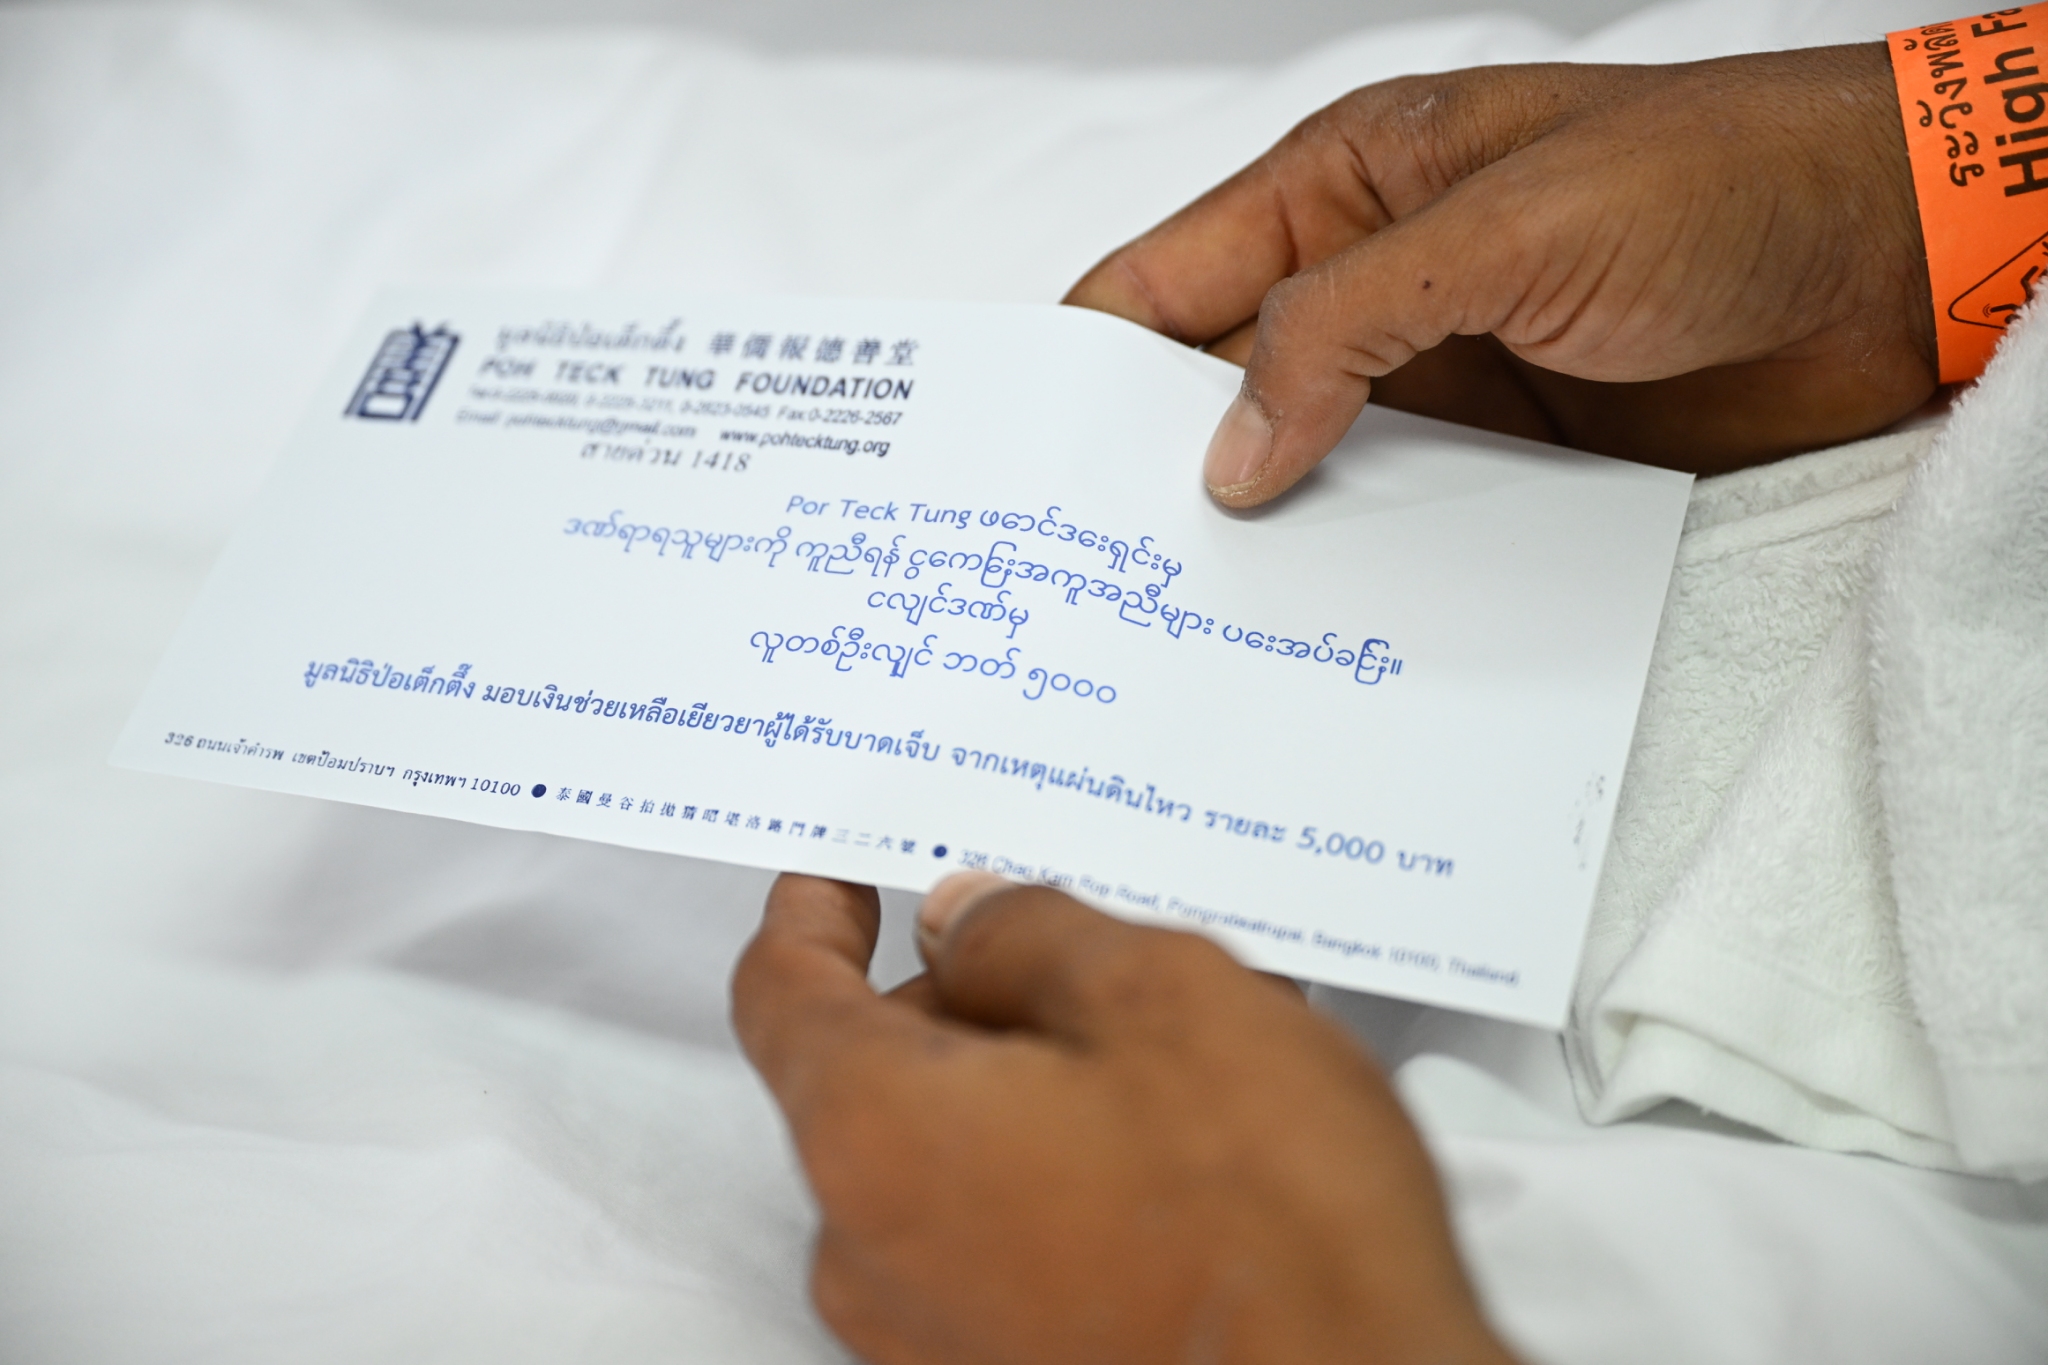 มูลนิธิป่อเต็กตึ๊ง 華僑報德善堂
POH TECK TUNG FOUNDATION
Fax:0-2226-2567
Email: pohtecktung@gmail.com www.pohtecktung.org
สายด่วน 1418
Por Teck Tung ဖောင်ဒေးရှင်းမှ
ဒဏ်ရာရသူများကို ကူညီရန် ငွေကြေးအကူအညီများ ပေးအပ်ခြင်း။
ငလျင်ဒဏ်မှ
လူတစ်ဦးလျှင် ဘတ် ၅၀၀၀
มูลนิธิป่อเต็กตึ๊ง มอบเงินช่วยเหลือเยียวยาผู้ได้รับบาดเจ็บ จากเหตุแผ่นดินไหว รายละ 5,000 บาท
326 ถนนเจ้าคำรพ เขตป้อมปราบฯ กรุงเทพฯ 10100 ● 泰國曼谷拍拋猜昭堪洛路門牌三二六號 ● 326 Chao Kam Rop Road, Bangkok 10100, Thailand
ระวังพลัด
High Fa